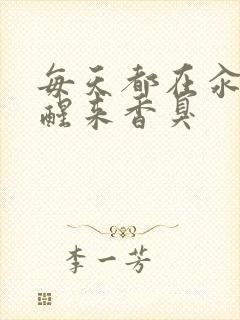 每天都在汆
醒来香臭
李一芳